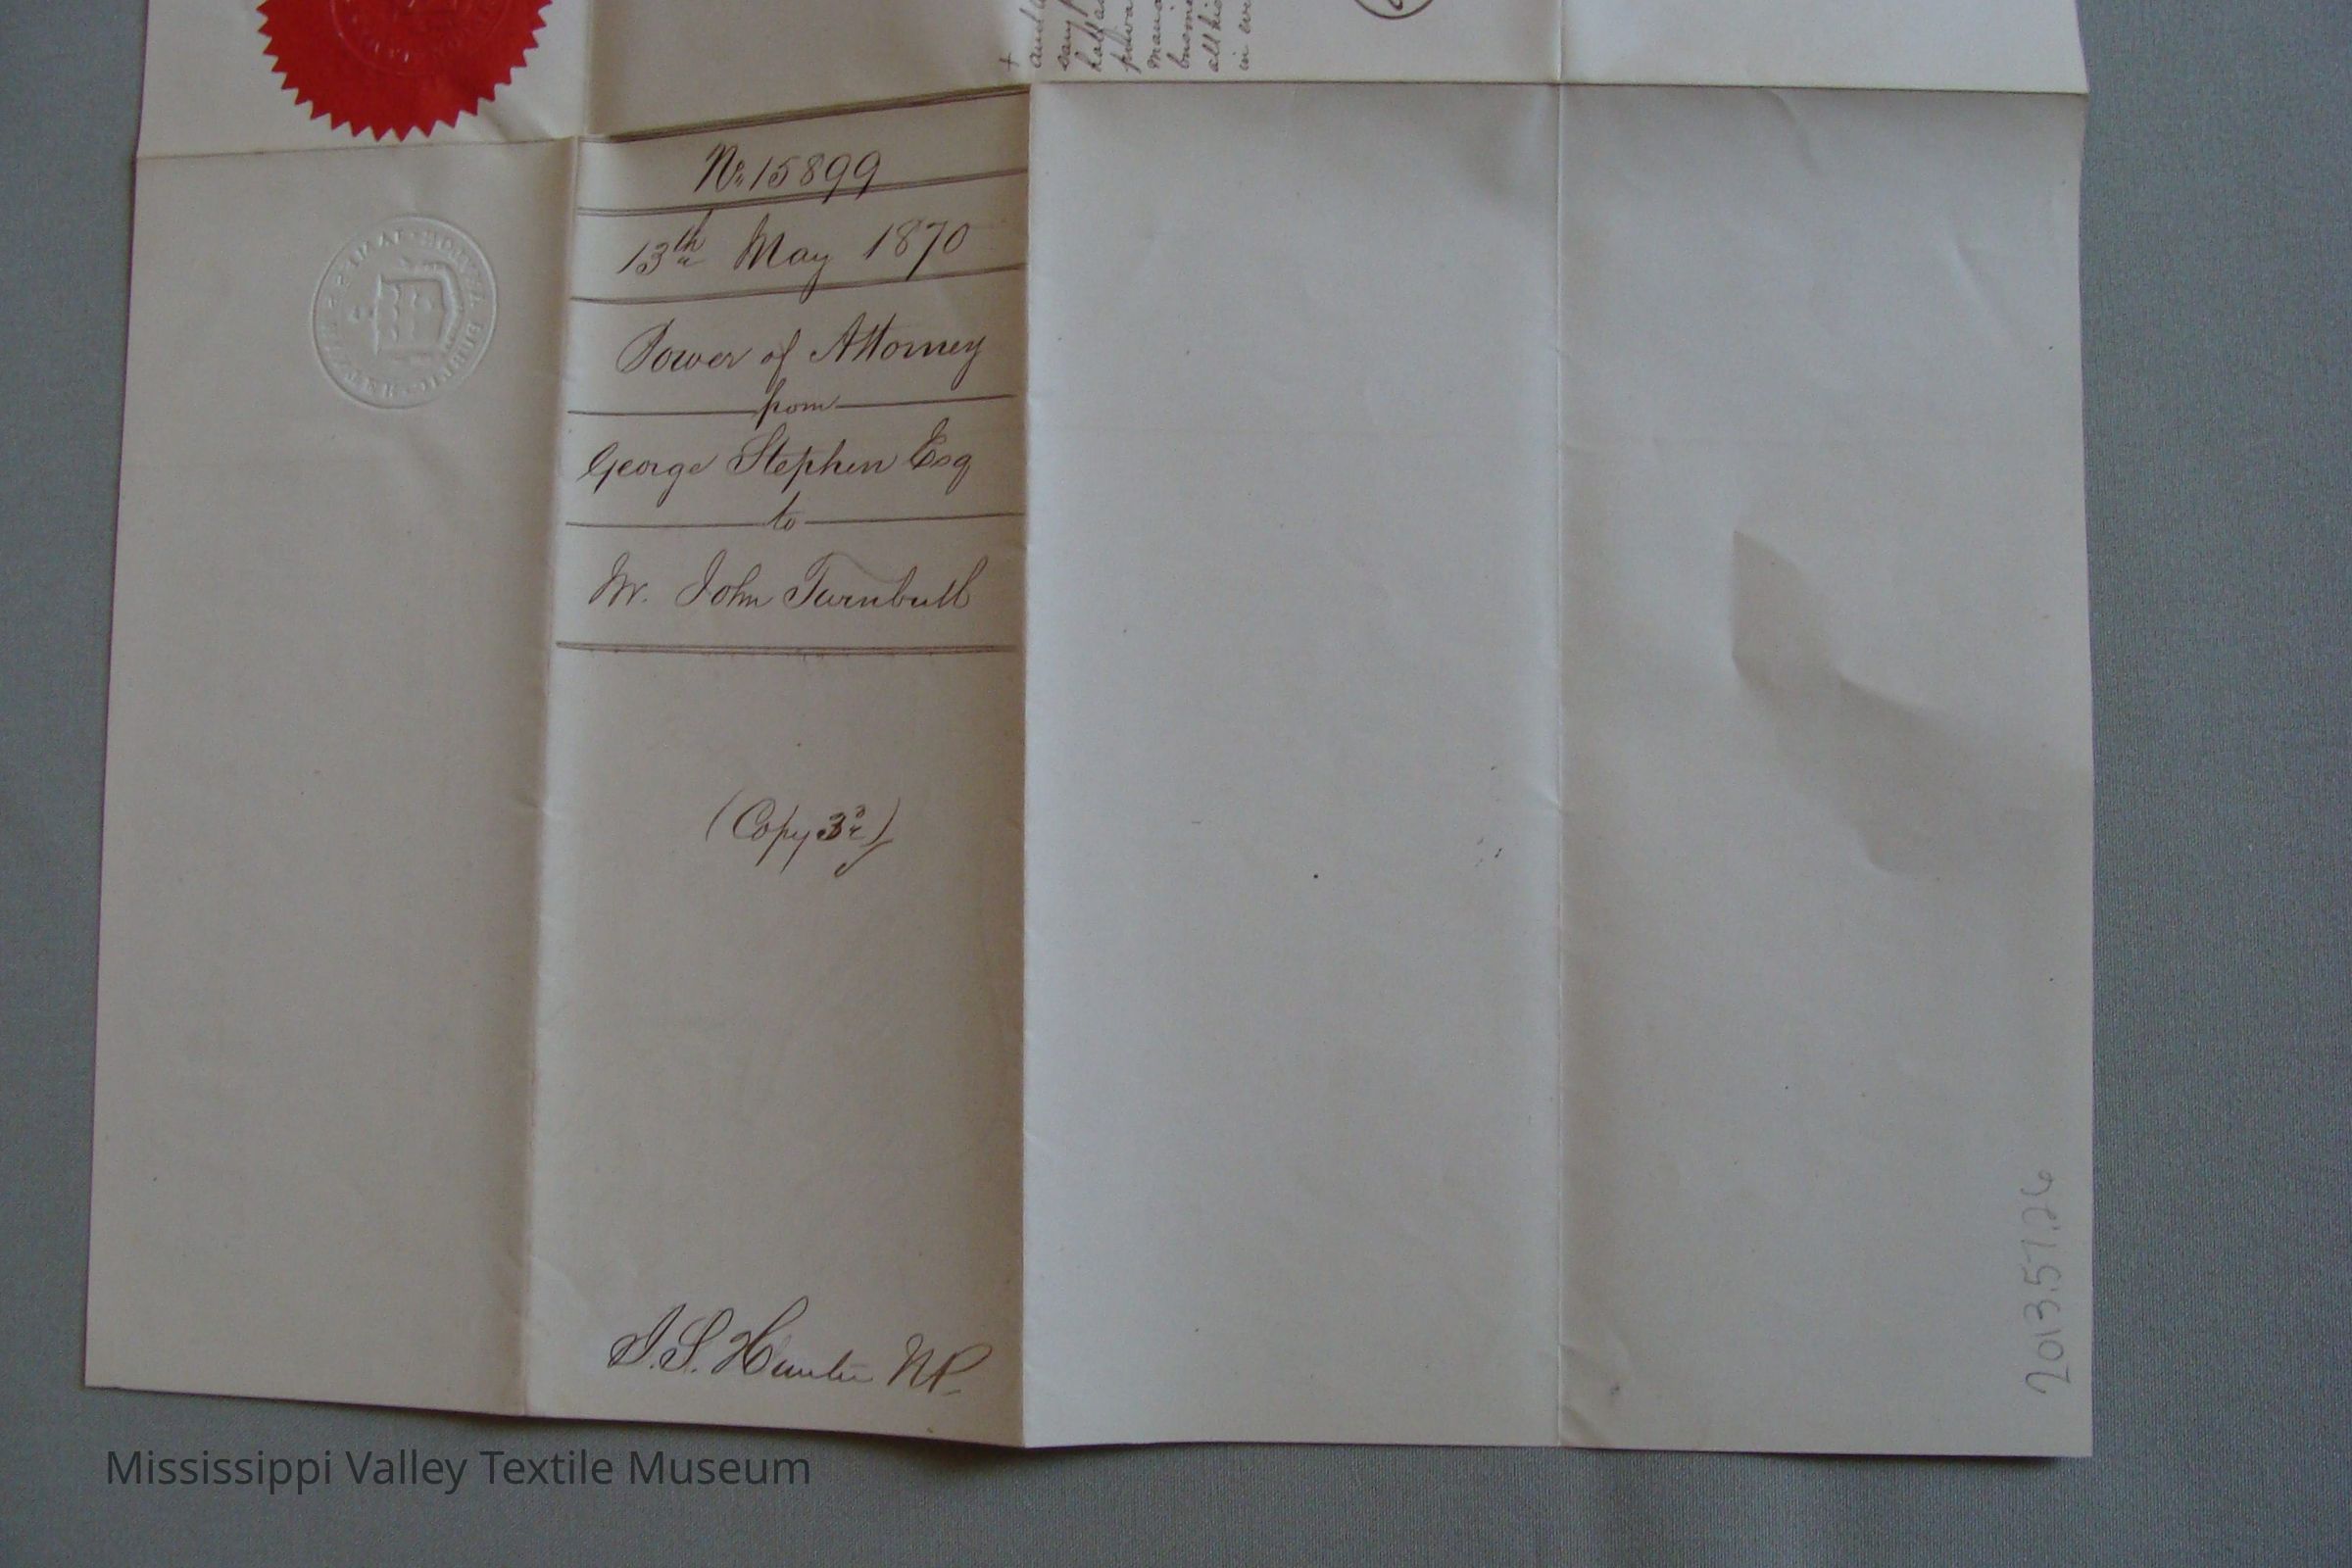 No. 15899
13th May 1870
Power of Attorney
from
George Stephen Esq
to
Mr. John Turnbull
(Copy 3d)
J.S. Hunter NP.
2013.51.26
Mississippi Valley Textile Museum